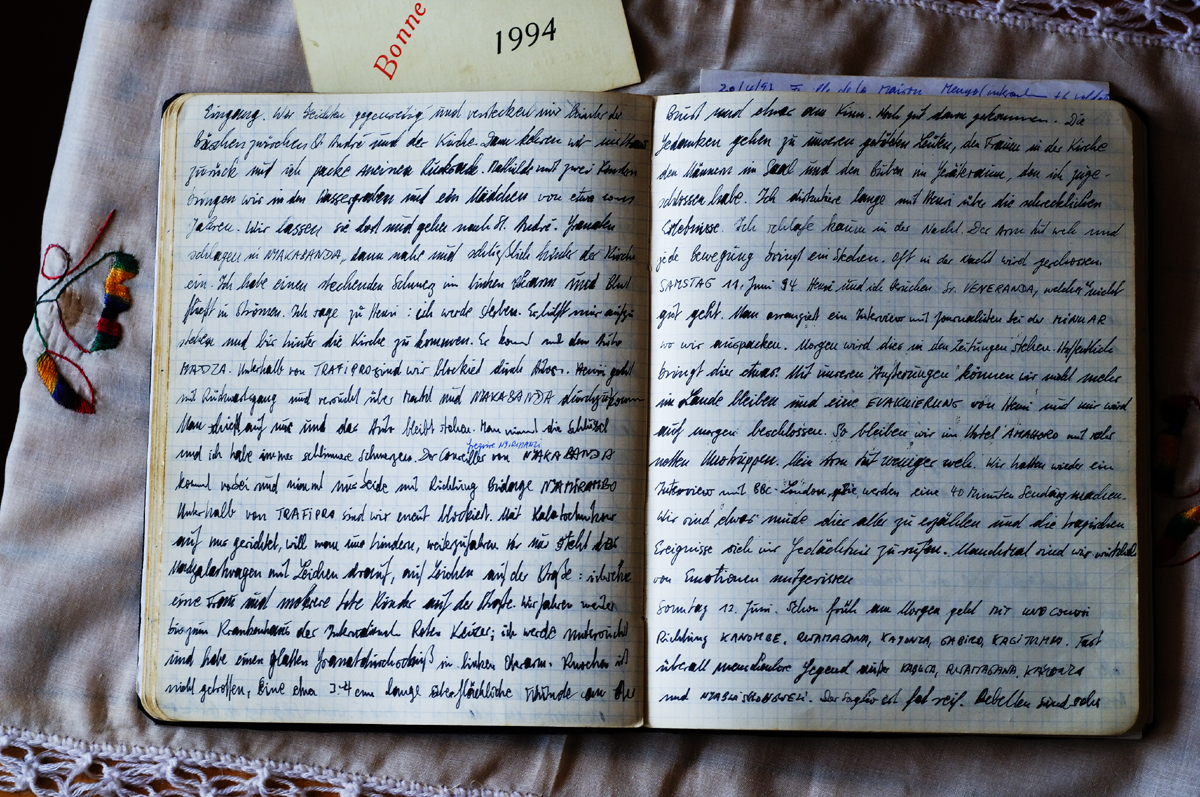 Bonne
1994
Eingang. Wir beichten gegenseitig und verstecken uns hinter den
Büschen zwischen St. André und der Kirche. Dann kehren wir
zurück und ich packe meinen Rucksack. Mathilde mit zwei Kindern
bringen wir in den Wassergraben und ein Mädchen von etwa
Jahren. Wir lassen sie dort und gehen nach St. André. Granaten
schlagen in NYAKABANDA, dann nahe und schliesslich hinter der Kirche
ein. Ich habe einen stechenden Schmerz im linken Oberarm und Blut
fliesst in Strömen. Ich sage zu Henri: ich werde sterben. Er hilft mir aufzu
stehen und bis hinter die Kirche zu kommen. Er kommt mit dem Auto
MAZDA. Unterhalb von TRAFIPRO sind wir blockiert durch Henri geht
mit Rückwärtsgang und versucht über und NYAKABANDA durchzukommen
Man schiesst auf uns und das Auto bleibt stehen. Man nimmt die Schlüssel
und ich habe immer schlimmere Schmerzen. Der Conseiller von NYAKABANDA
kommt vorbei und nimmt uns beide mit Richtung NYAMIRAMBO
Unterhalb von TRAFIPRO sind wir erneut blockiert. Mit
auf uns gerichtet, will man uns hindern, weiterzufahren. Vor uns steht das
Lastwagen mit Leichen drauf, auf Leichen auf der Strasse: ich sehe
eine Frau und mehrere tote Kinder auf der Strasse. Wir fahren weiter
bis zum Krankenhaus des Internationalen Roten Kreuzes; ich werde untersucht
und habe einen glatten Granatdurchschuss im linken Oberarm. Knochen ist
nicht getroffen, eine etwa 3-4 cm lange oberflächliche Wunde an der
20/4/93 de la Maison
Brust und etwas am Kinn. Noch gut davon gekommen. Die
Gedanken gehen zu unseren getöteten Leuten, den Frauen in der Kirche
den Männern im Saal und den Buben im Geräteraum, den ich zuge-
schlossen habe. Ich diskutiere lange mit Henri über die schrecklichen
Erlebnisse. Ich schlafe kaum in der Nacht. Der Arm tut weh und
jede Bewegung bringt ein Stechen. Oft in der Nacht wird geschossen.
SAMSTAG 11. Juni 94. Henri und ich besuchen Sr. VENERANDA, welcher es nicht
gut geht. Man arrangiert ein Interview mit Journalisten bei der MINUAR
wo wir auspacken. Morgen wird dies in den Zeitungen stehen. Hoffentlich
bringt dies etwas. Mit unseren Äusserungen können wir nicht mehr
im Lande bleiben und eine EVAKUIERUNG von Henri und mir wird
auf morgen beschlossen. So bleiben wir im Hotel AMAHORO mit sehr
netten Unotruppen. Mein Arm tut weniger weh. Wir hatten wieder ein
Interview mit BBC-London, sie werden eine 40 Minuten Sendung machen.
Wir sind etwas müde dies alles zu erzählen und die tragischen
Ereignisse sich ins Gedächtnis zu rufen. Manchmal sind wir wirklich
von Emotionen mitgerissen
Sonntag 12. Juni. Schon früh am Morgen geht mit UNO Convoi
Richtung KANOMBE, RWAMAGANA, KAYONZA, GABIRO, KAGITUMBA. Fast
überall menschenleere Gegend ausser RWAMAGANA, KAYONZA
und Der Sorgho ist fast reif. Rebellen sind sehr